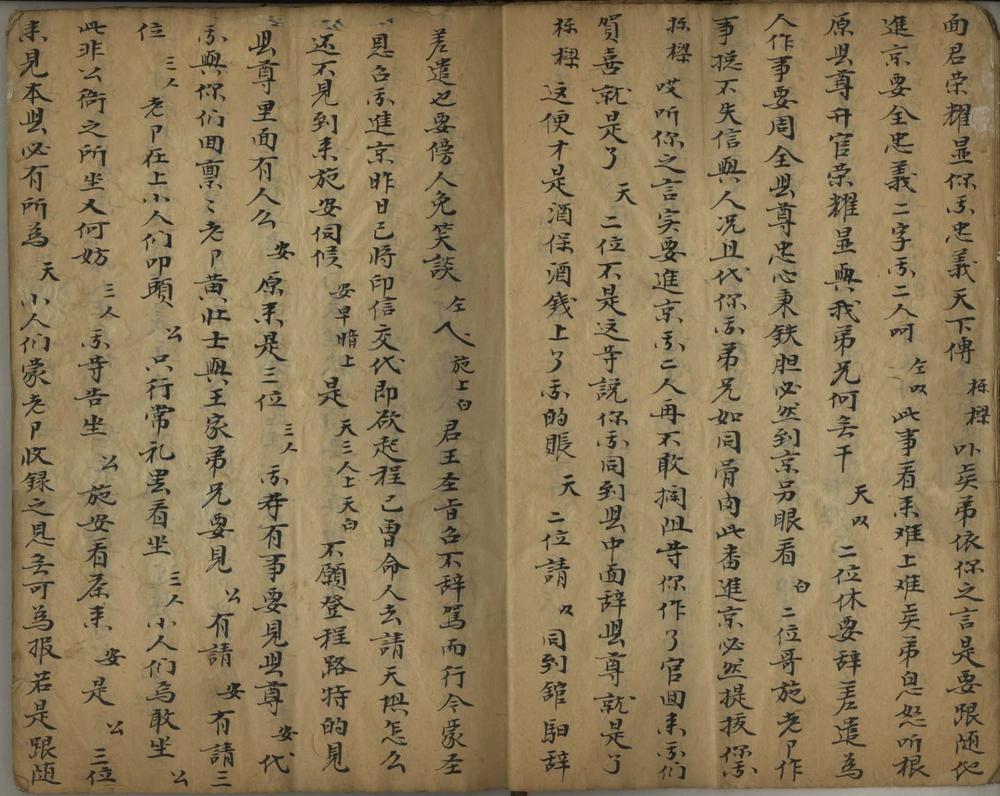 面君荣耀显你我忠義天下傳 栋樑 卟矣弟依你之言是要跟随他
進京要全忠義二字我二人呵 左㕛 此事看来难上难矣弟息怒听根
原县尊升官荣耀显與我弟兄何干 天㕛 二位休要辞差遣為
人作事要周全县尊忠心秉鉄胆必然到京另眼看 白 二位哥施老卩作
事捉不失信與人况且代你我弟兄如同骨肉此番進京必然提拔你我
栋樑 哎听你之言实要進京我二人再不敢拦阻等你作了官回来我们
贺喜就是了 天 二位不是这等説你我同到县中面辞县尊就是了
栋樑 这便才是酒保酒钱上了我的賬 天 二位請 㕛 同到舘駅辞
差遣也要傍人免笑談 左 入 施上白 君王圣旨召不辞駕而行今蒙圣
恩召我進京昨日已将印信交代即欲起程已曾命人去請天棋怎么
还不見到来施安伺候 安早暗上 是 天三人上天白 不願登程路特的見
县尊里面有人么 安 原来是三位 三人 我等有事要見县尊 安 代
我與你们回禀〻老卩黄壮士與王家弟兄要見 公 有請 安 有請三
位 三人 老卩在上小人们叩頭 公 只行常礼罢看坐 三人 小人们焉敢坐 公
此非公衙之所坐又何妨 三人 我等告坐 公 施安看茶来 安 是 公 三位
来見本县必有所為 天 小人们蒙老卩收録之恩无可為报若是跟随